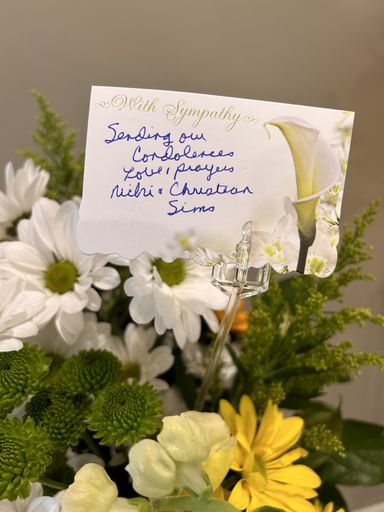 With Sympathy
Sending our
Condolences
Love & prayers
Nicki & Christian
Sims